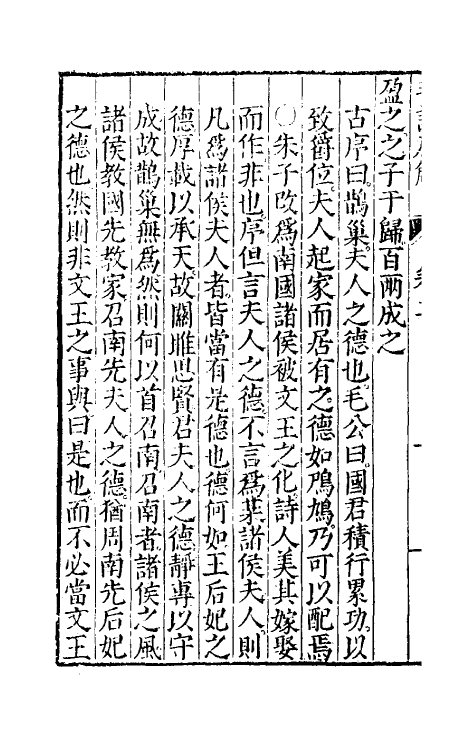 盈之之子于歸百兩成之
古序曰鵲巢夫人之德也毛公曰國君積行累功以
致爵位夫人起家而居有之德如鳲鳩乃可以配焉
○朱子改為南國諸侯被文王之化詩人美其嫁娶
而作非也序但言夫人之德不言爲某諸侯夫人則
凡爲諸侯夫人者皆當有是德也德何如王后妃之
德厚載以承天故關雎思賢君夫人之德靜專以守
成故鵲巢無爲然則何以首召南召南者諸侯之風
諸侯教國先教家召南先夫人之德猶周南先后妃
之德也然則非文王之事與曰是也而不必當文王